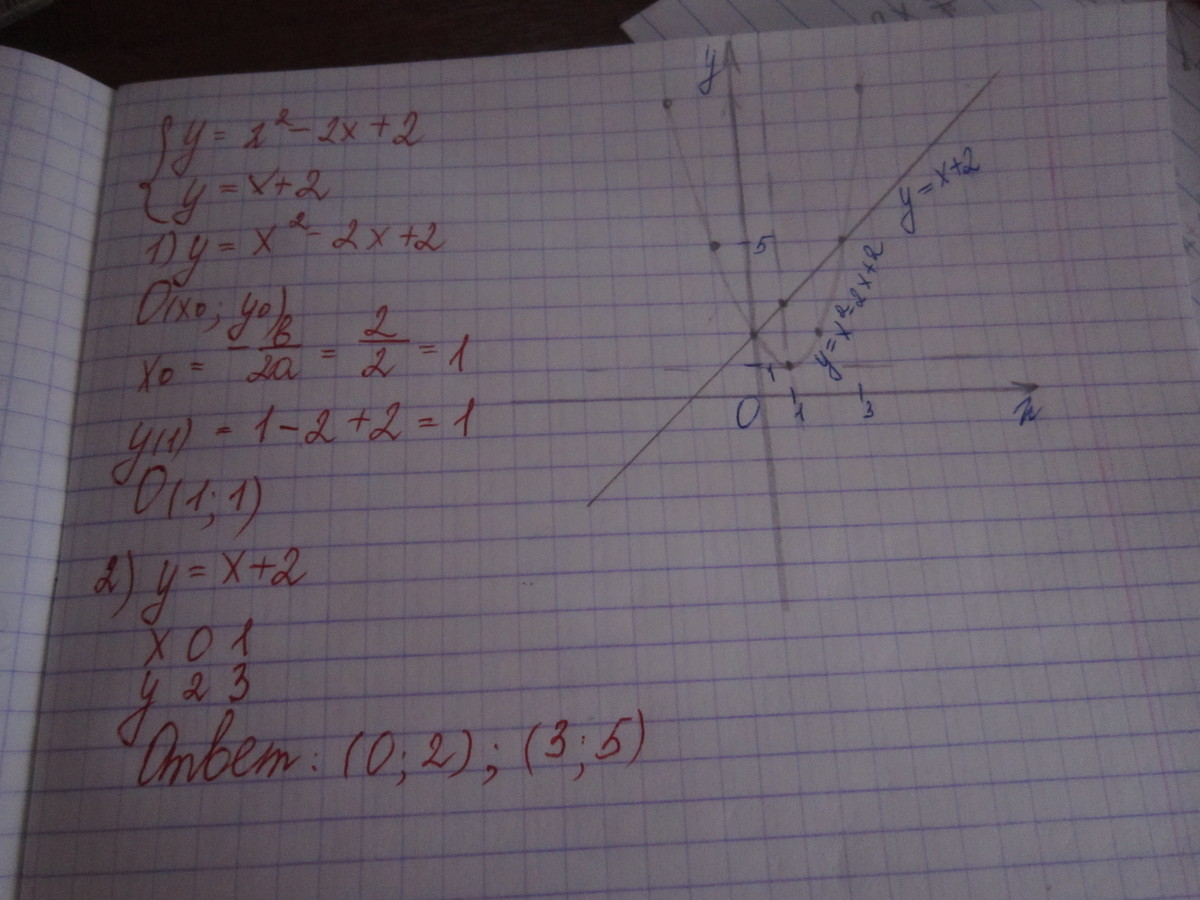 { y = x² - 2x + 2
{ y = x + 2
1) y = x² - 2x + 2
O(x₀; y₀)
x₀ = -в/2a = 2/2 = 1
y(1) = 1 - 2 + 2 = 1
O(1; 1)
2) y = x + 2
x 0 1
y 2 3
Ответ: (0; 2); (3; 5)
y
5
1
0 1 3
x
y = x + 2
y = x² - 2x + 2